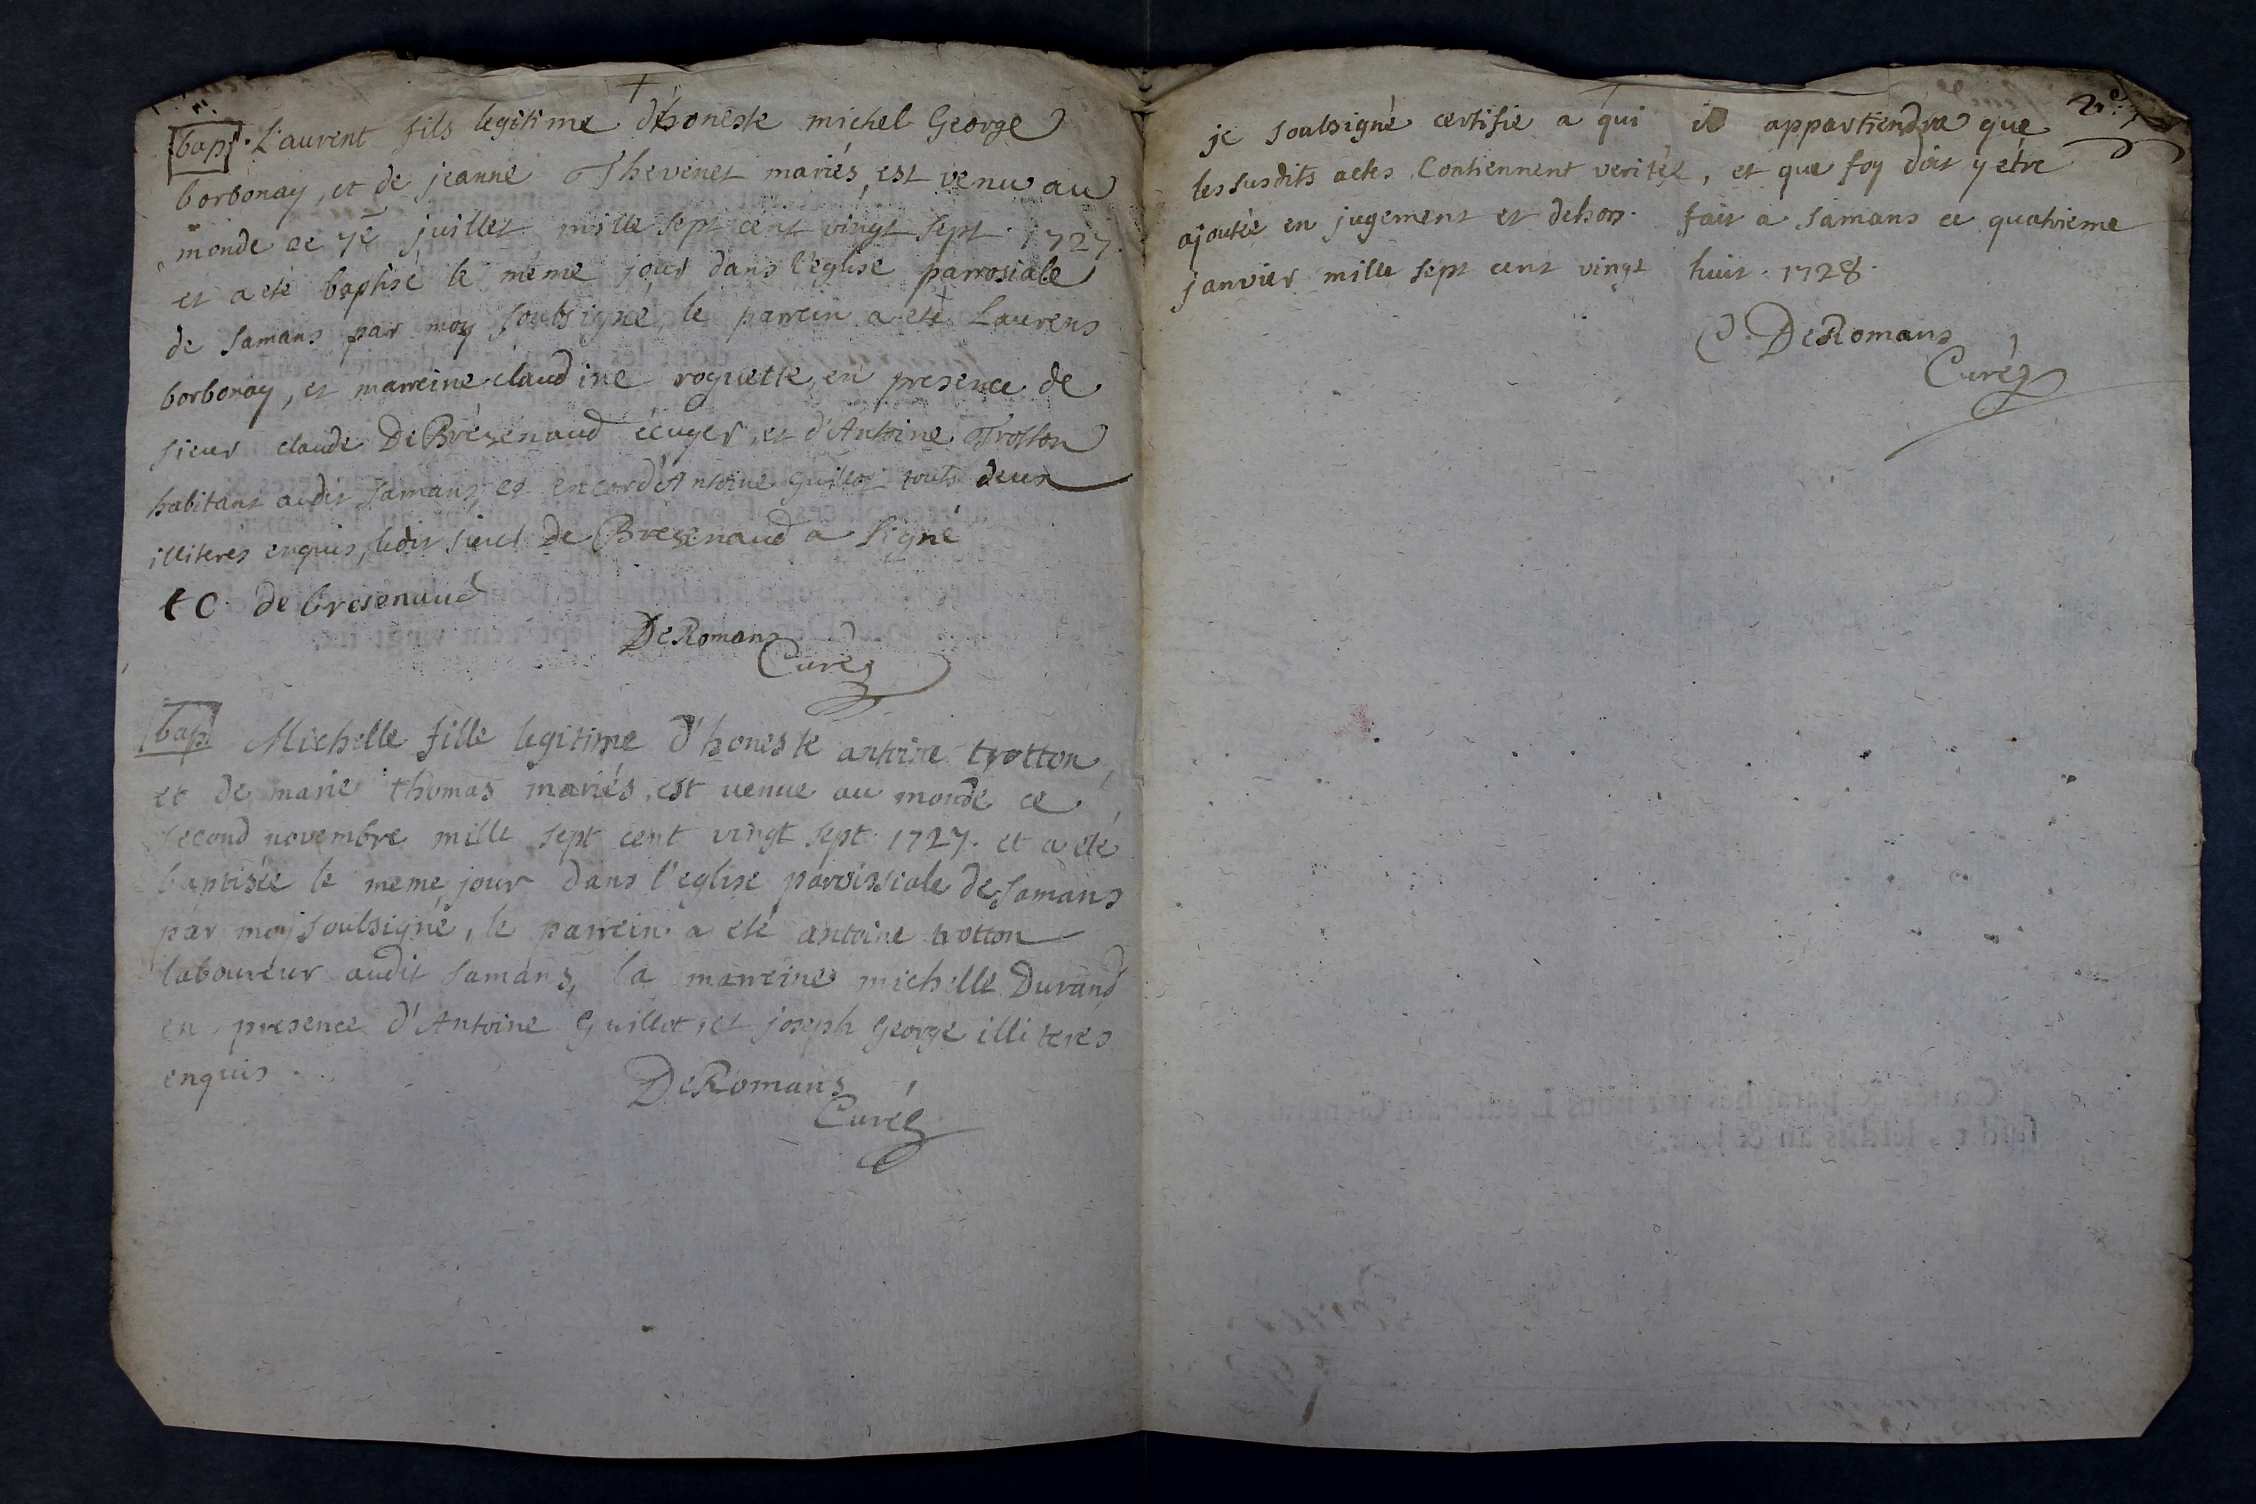 bap. Laurent fils legitime d'honeste michel George
borbonay, et de jeanne Thevenet mariés, est venu au
monde ce 7e juillet mille sept cent vingt sept. 1727.
et a eté baptisé le même jour dans l'eglise parrosiale
de Samans par moy soubsigné, le parrein a eté Laurens
borbonay, et marreine claudine roguette, en presence de
sieur claude De Brésenaud écuyer, et d'Antoine Trotton
habitant audit Samans, et encor d'Antoine guillot touts deux
illiteres enquis, ledit sieur De Bresenaud a signé
C. de bresenaud
De Romans
Curé
bap. Michelle fille legitime d'honeste antoine trotton,
et de marie thomas mariés, est venue au monde ce
second novembre mille sept cent vingt sept. 1727. et a eté
baptisée le meme jour dans l'eglise paroissiale de Samans
par moy soubsigné, le parrein a eté antoine trotton
laboureur audit Samans, la marreine michelle Durand
en presence d'Antoine Guillot, et joseph George illiteres
enquis.
De Romans
Curé
2e
je soubsigné certifie a qui il appartiendra que
les susdits actes Contiennent verité, et que foy doit y étre
ajoutée en jugement et dehors. fait a Samans ce quatrieme
janvier mille sept cent vingt huit. 1728.
De Romans
Curé